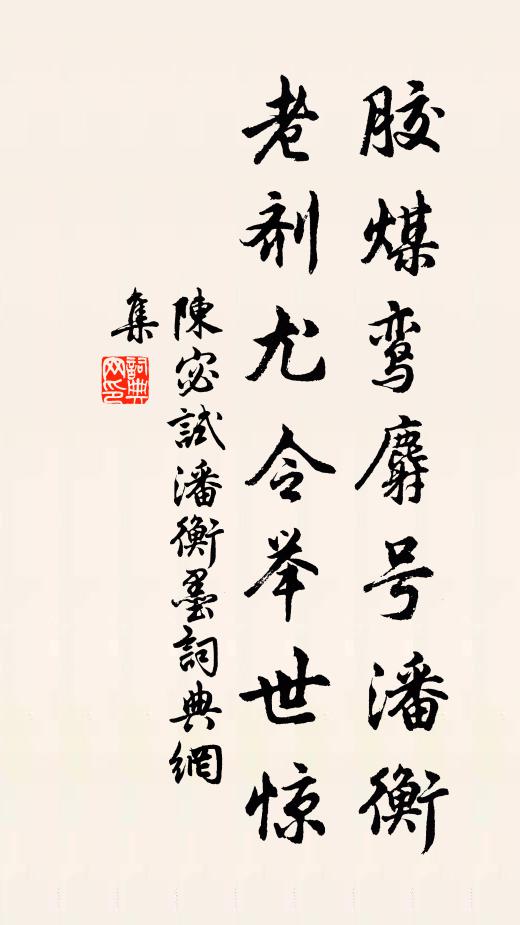 胶煤鸾麝号潘衡
老剂尤令举世惊
陳宓試潘衡墨詞典網
集
詞典
网印